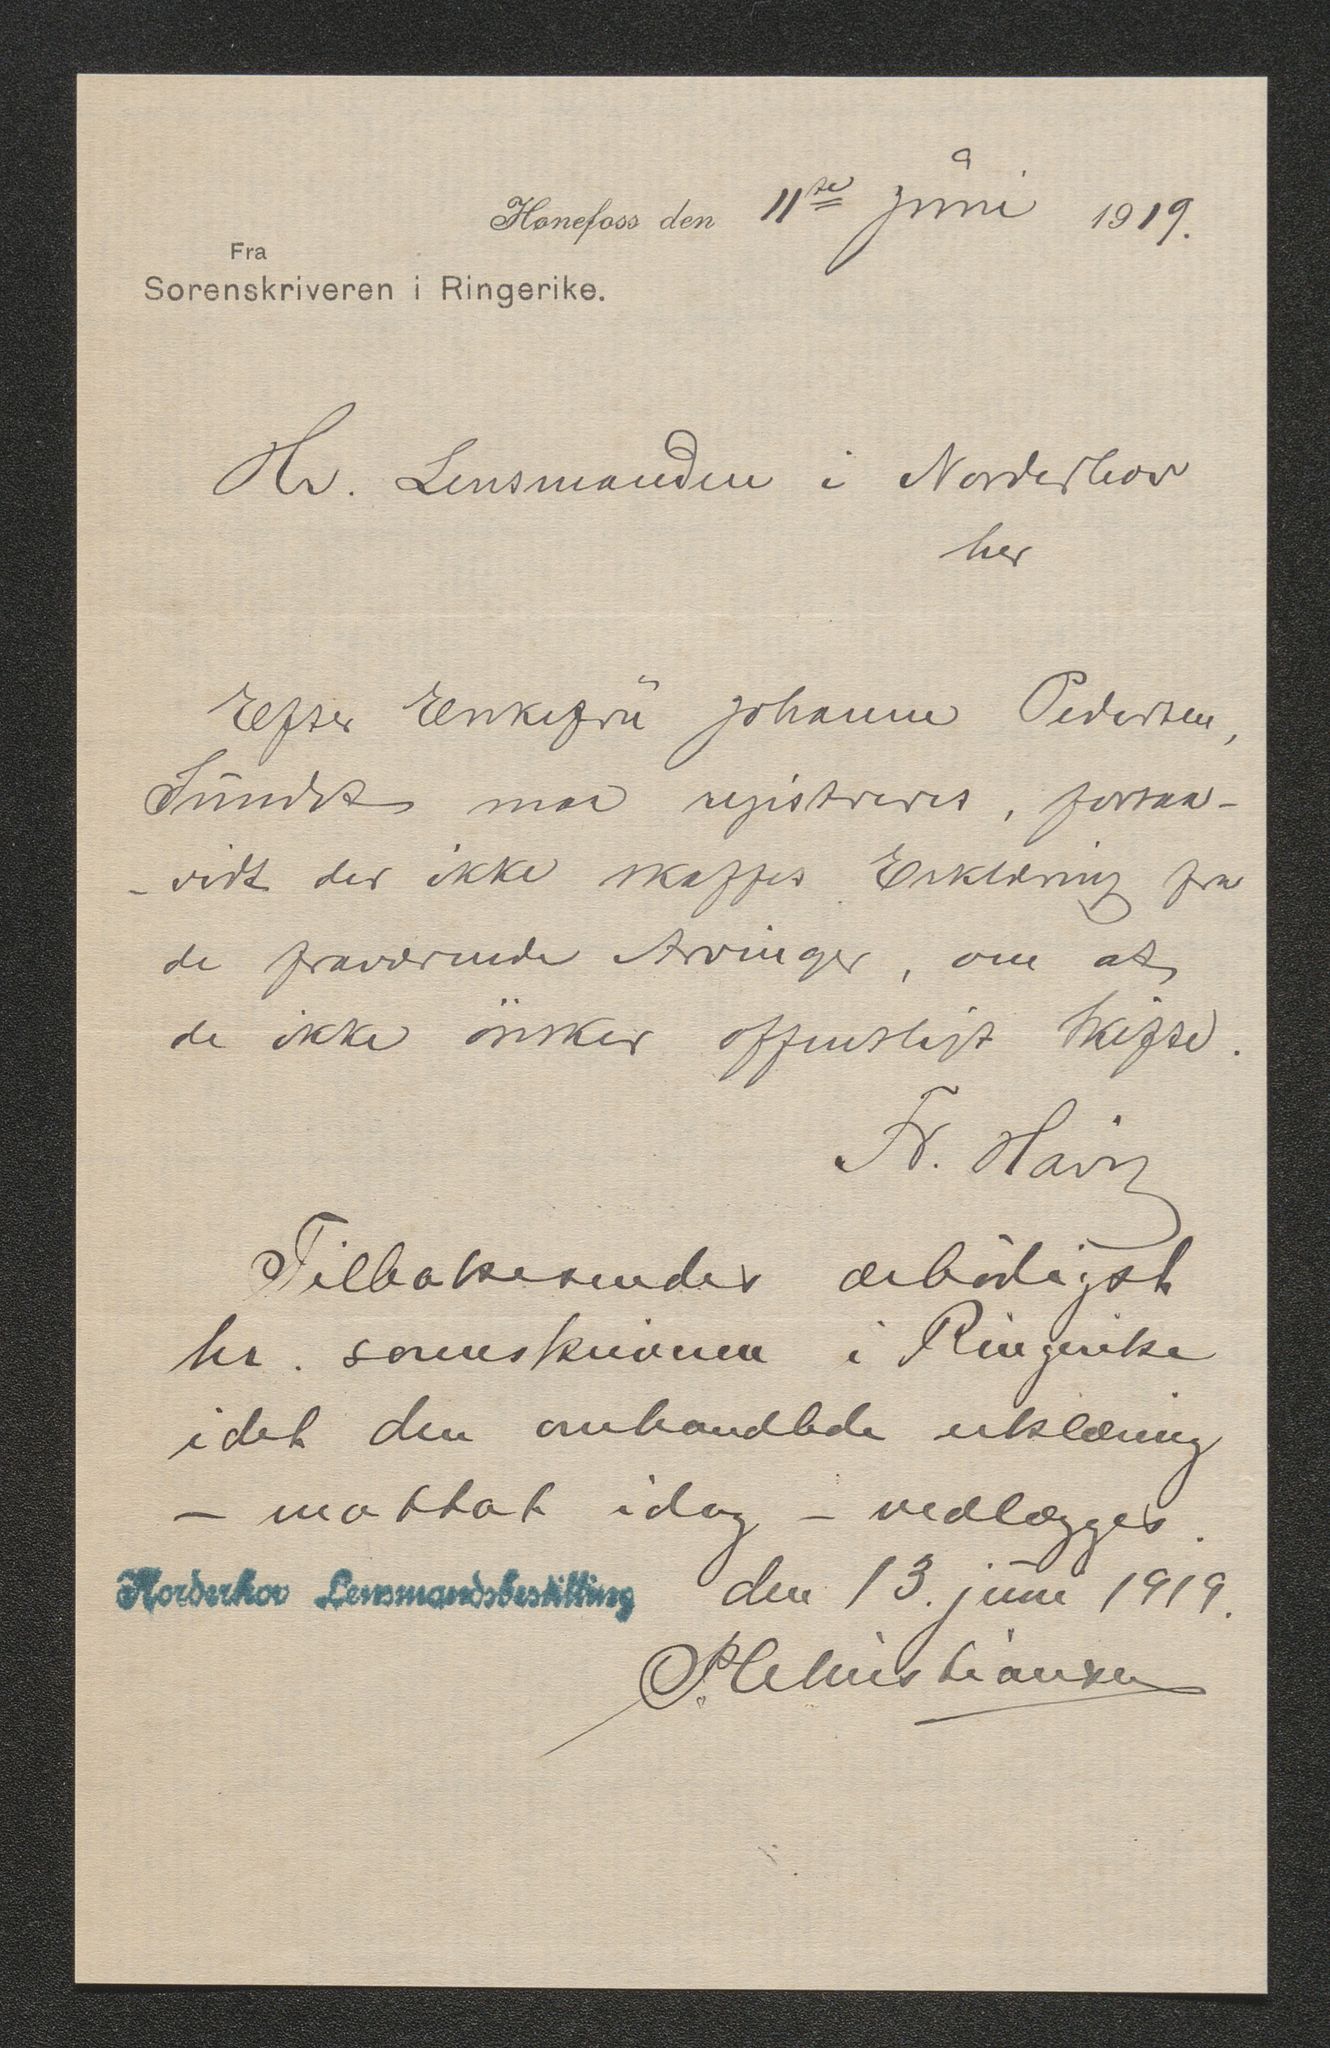 Hønefoss den 11te juni 1919.
Fra
Sorenskriveren i Ringerike.
Hr. Lensmanden i Norderhov
her
Efter Enkefru Johanne Pedersen,
Sundet maa registreres, forsaa-
-vidt der ikke skaffes Erklæring fra
de fraværende Arvinger, om at
de ikke ønsker offentligt Skifte.
Fr.
Tilbakesendes ærbødigst
hr. sorenskriveren i Ringerike
idet den omhandlede erklæring
- mottat idag - vedlægges.
Norderhov Lensmandsbestilling den 13. juni 1919.
Christiansen